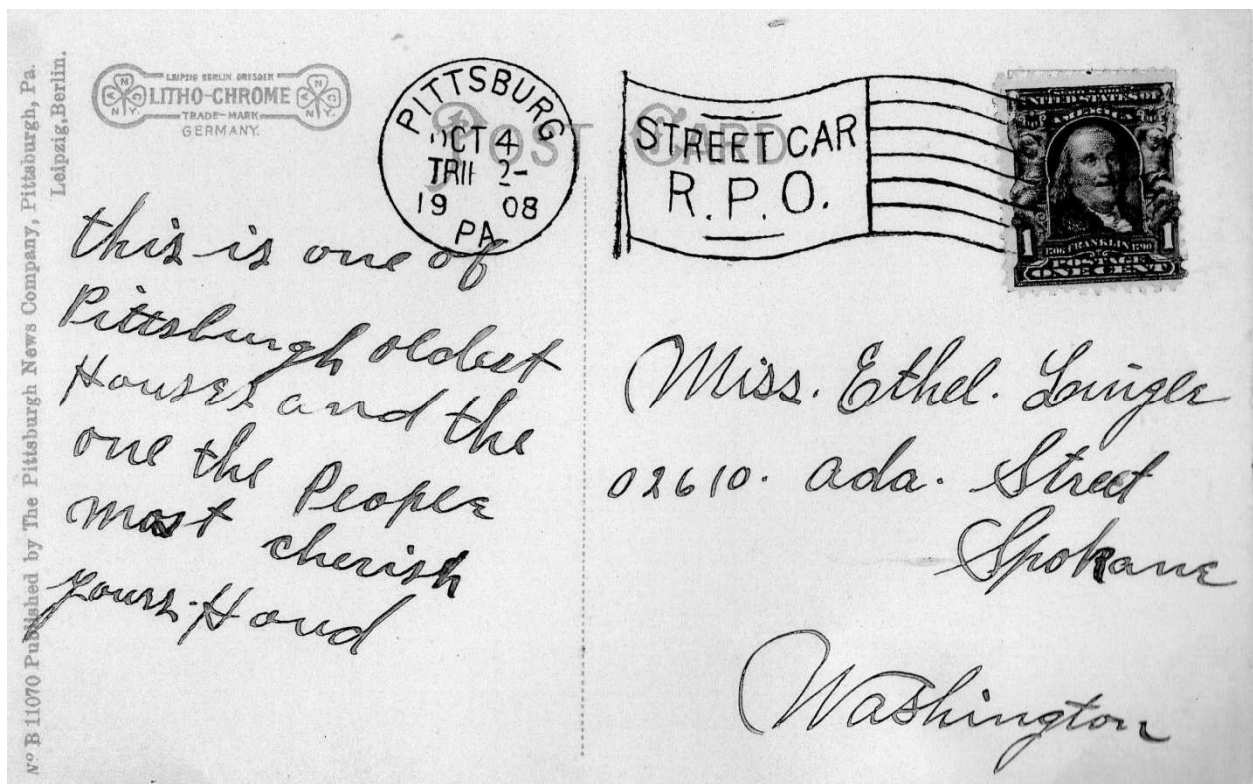 Nº B 11070 Published by The Pittsburgh News Company, Pittsburgh, Pa.
Leipzig, Berlin.
LEIPZIG BERLIN DRESDEN
LITHO-CHROME
TRADE-MARK
GERMANY.
N Y C
N Y C
POST CARD
PITTSBURG
OCT 4
2-
19 08
PA
STREET CAR
R.P.O.
UNITED STATES OF
AMERICA
1706 FRANKLIN 1790
1 POSTAGE 1
ONE CENT
this is one of
Pittsburgh oldest
Houses and the
one the People
most cherish
yours. H and
Miss. Ethel.
02610. Ada. Street
Spokane
Washington